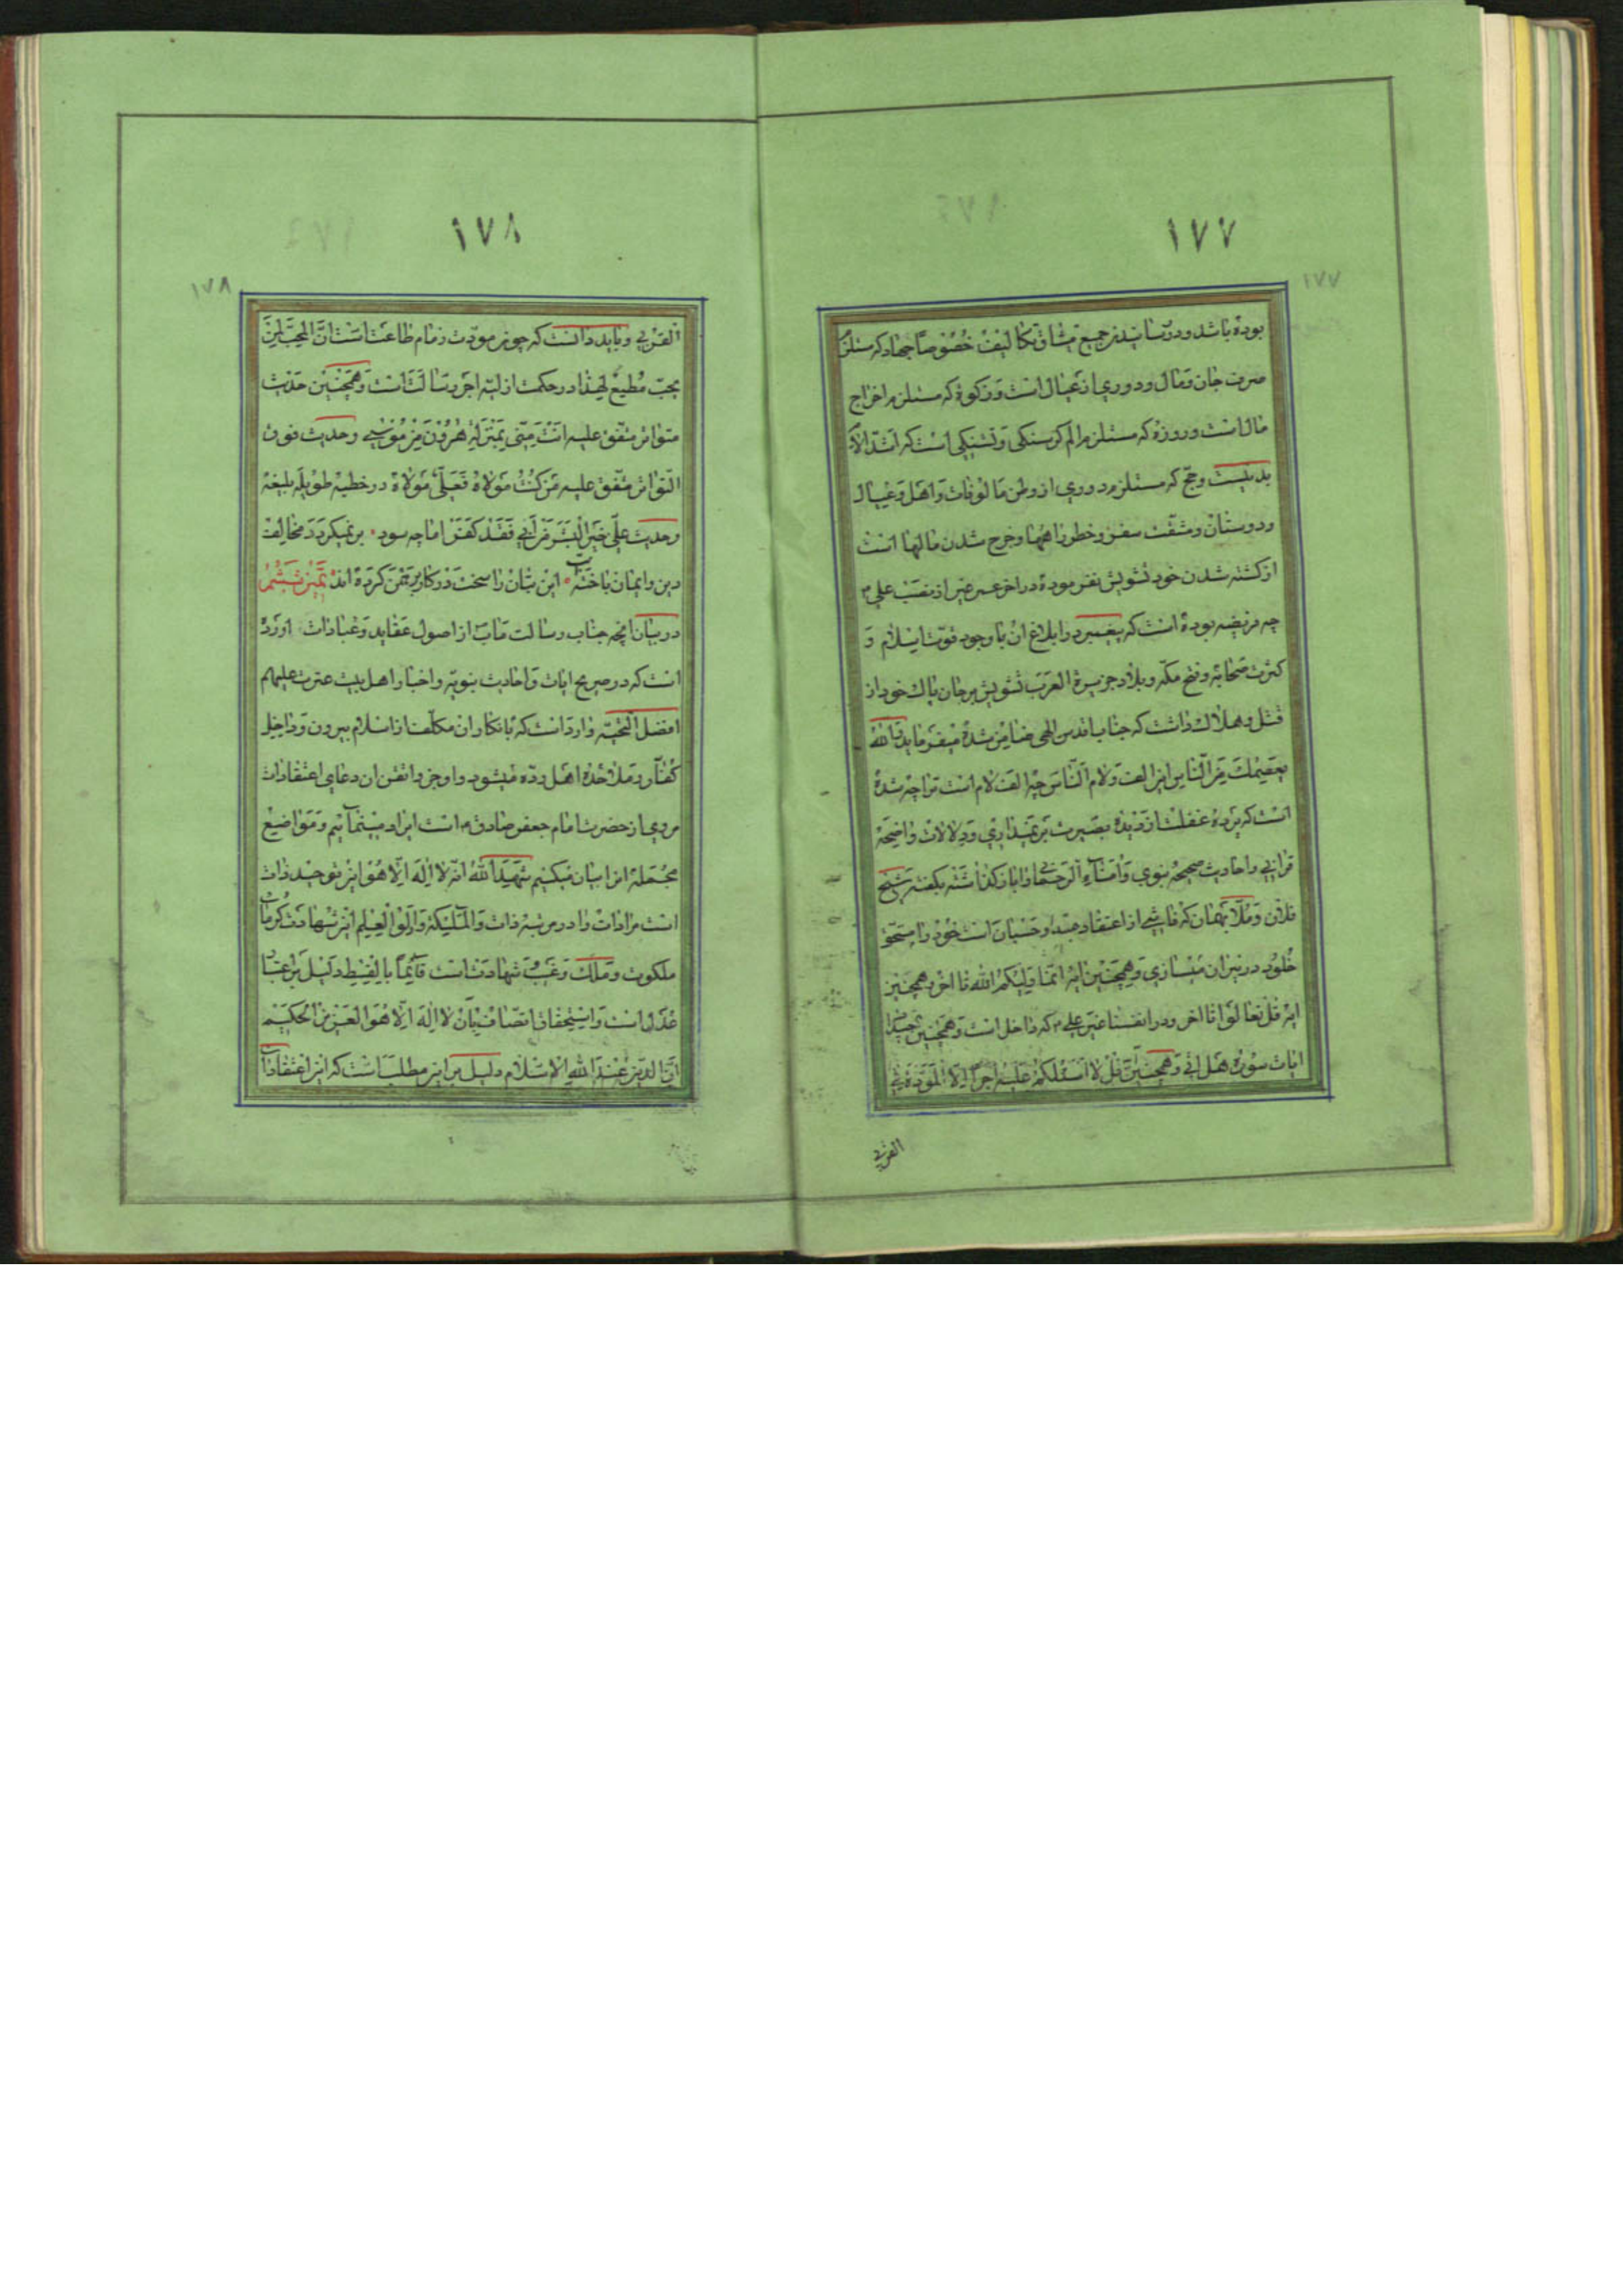 ١٧٧
١٧٧
بوده باشد و در رسانیدن جمیع مشاق تکالیف خصوصًا جهاد که مستلزم
صرف جان و مال و دوری از عیال است و زکوة که مستلزم اخراج
مال است و روزه که مستلزم الم کرسنکی و تشنکی است که اشدّ الام
بدنیست و حجّ که مستلزم دوری از وطن مالوفات و اهل و عیال
و دوستان و مشقّت سفر و خطور راهها و خرج شدن مالها است
از کشته شدن خود تشویش نفرموده در اخر عمر غیر از نصب علی ع
چه فریضه بوده است که پیغمبر در ابلاغ ان با وجود قوّت اسلام و
کثرت صحابه و فتح مکّه و بلاد جزیرة العرب تشویش بر جان پاک خود از
قتل و هلاک داشت که جناب اقدس الهی ضامن شده میفرماید و الله
یعصمک من النّاس این الف و لام النّاس چه الف لام است ترا چه شده
است که پرده غفلت از دیده بصیرت بر نمیداری و دلالات واضحه
قرانی و احادیث صحیحه نبوی و امناء الرحمن را باز کذاشته بکفته شیخ
فلان و ملّا بهمان که ناشی از اعتقاد جدّ و حسبان است خود را مستحق
خلود در نیران میسازی و همچنین ایه انّما ولیّکم الله تا اخر و همچنین
ایه قل تعالوا تا اخر و در انفسنا غیر علی ع که داخل است و همچنین
ایات سوره هل اتی و همچنین قل لا اسئلکم علیه اجرًا الّا المودّة فی
القربی
١٧٨
١٧٨
القربی و باید دانست که چون مودّت زمام طاعت است انّ المحبّ لمن
یحبّ مطیع لهذا در حکمت ازلیّه اجر رسالت است و همچنین حدیث
متواتر متّفق علیه انت منّی بمنزلة هرون من موسی و حدیث فوق
التّواتر متّفق علیه من کنت مولاه فعلیّ مولاه در خطبه طویله بلیغه
و حدیث علیّ خیر البشر من ابی فقد کفر امّا چه سود ٠ بر نمیکردد مخالف
دین و ایمان باخته ٠ این بتان را سخت در کار برهمن کرده اند تمییز ششم
در بیان انچه جناب رسالت ماب از اصول عقاید و عبادات اورده
است که در صریح ایات و احادیث نبویّه و اخبار اهل بیت عترت علیهم
افضل التّحیّه وارد است که بانکار ان مکلّف از اسلام بیرون و داخل
کفّار و ملاحده اهل ردّه میشود و اوجز و اتقن ان دعای اعتقادات
مروی از حضرت امام جعفر صادق ع است ایراد مینمائیم و مواضع
مجمله انرا بیان میکنیم شهد الله انّه لا اله الّا هو این توحید ذات
است مر ذات را در مرتبه ذات و الملئکة و اولوا العلم این شهادت کرّوبیان
ملکوت و ملک و غیب و شهادت است قائمًا بالقسط دلیل بر اعتبار
عدل است و استحقاق اتصاف بان لا اله الّا هو العزیز الحکیم
انّ الدین عند الله الاسلام دلیل بر این مطلب است که این اعتقادات